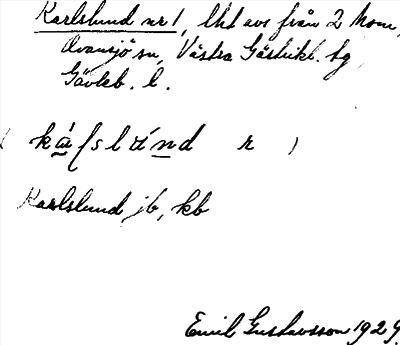 Karlslund nr 1, lht avs från 2 Mom,
Ovansjö sn, Västra Gästrikl. tg
Gävleb. l.
( ká̱ſslu̱nd r )
Karlslund jb, kb
Emil Gustavsson 1929.